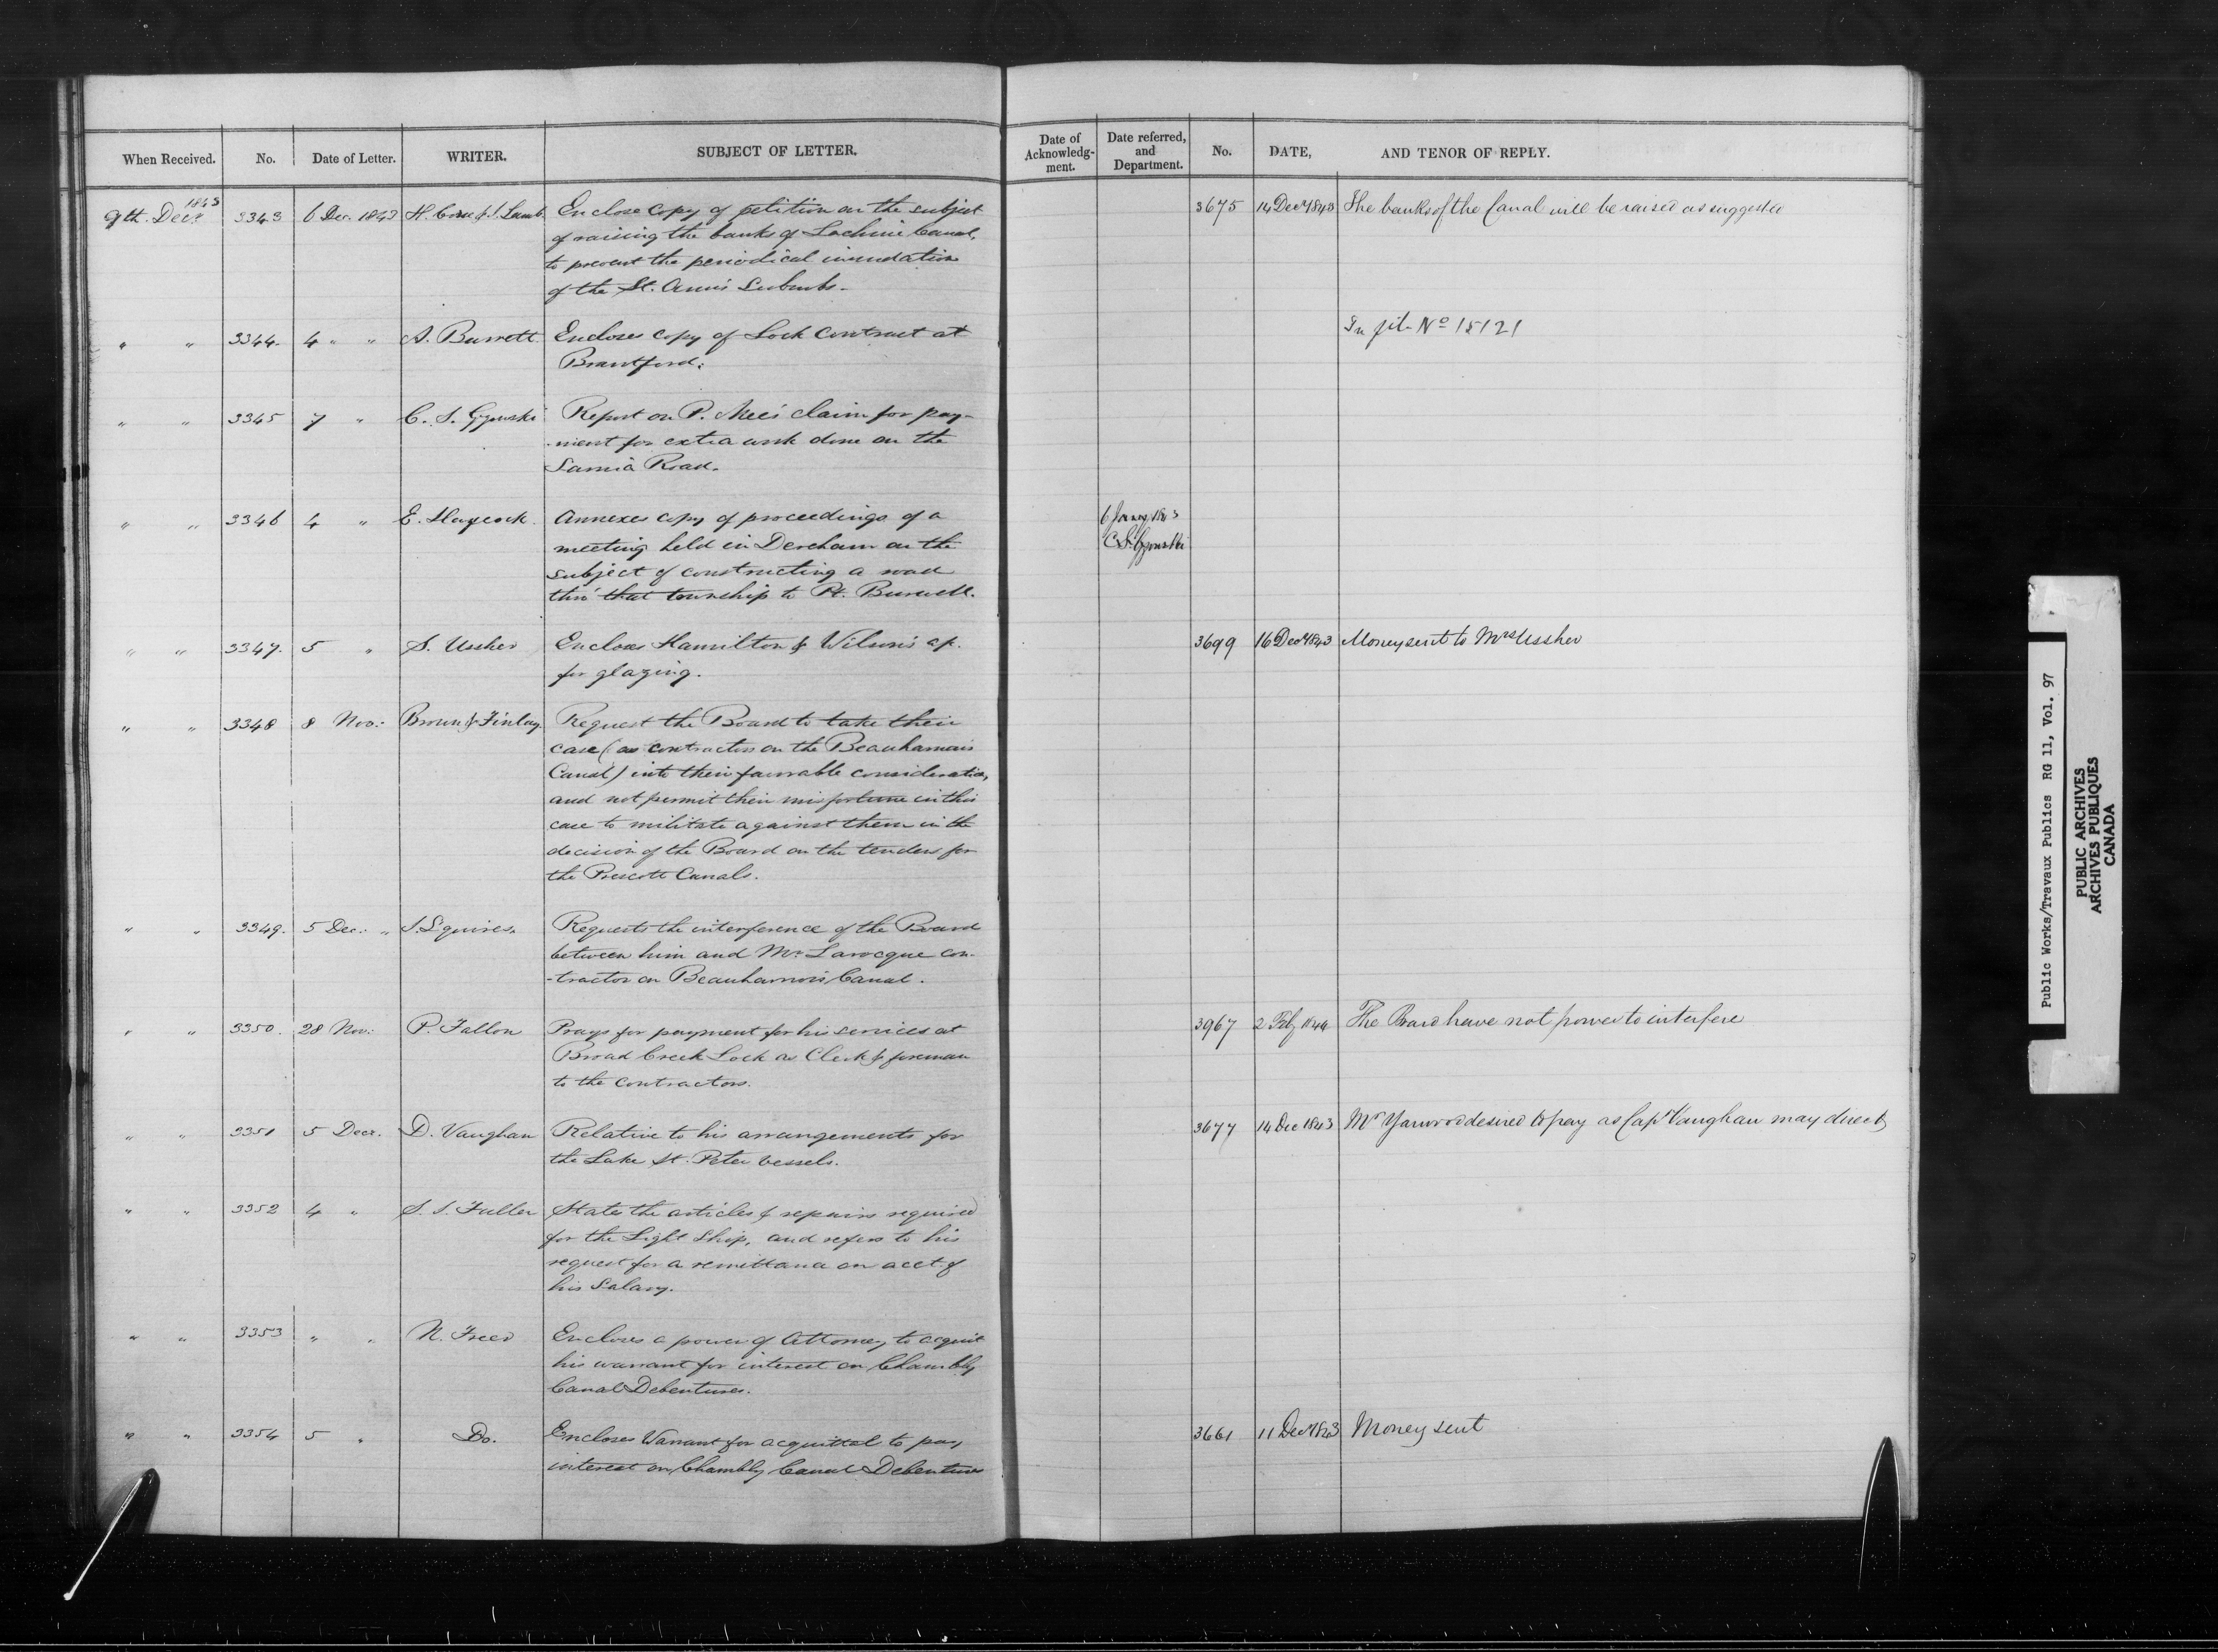 When Received. No. Date of Letter. WRITER. SUBJECT OF LETTER. Date of Acknowledg-ment. Date referred, and Department. No. DATE, AND TENOR OF REPLY.
1843
9th. Decr. 3343 6 Dec. 1843 H. & S. Lamb Enclose copy of petition on the subject 3675 14 Decr 1843 The banks of the Canal will be raised as suggested
of raising the banks of Lachine Canal,
to prevent the periodical inundation
of the St. Ann's Suburbs.
" " 3344. 4 " " A. Burrett. Encloses copy of Lock Contract at In file No 15121
Brantford.
" " 3345 7 " C. S. Gzowski Report on P. Mee's claim for pay-
-ment for extra work done on the
Sarnia Road.
" " 3346 4 " E. Haycock. Annexes copy of proceedings of a 6 Jany 1843
meeting held in Dereham on the C. S. Gzowski
subject of constructing a road
thro' that township to Pt. Burwell.
" " 3347. 5 " S. Ussher Encloses Hamilton & Wilson's a/c. 3699 16 Decr 1843 Money sent to Mrs Ussher
for glazing.
" " 3348 8 Nov: Brown & Finlay. Request the Board to take their
case (as contractors on the Beauharnois
Canal) into their favorable consideration,
and not permit their misfortune in this
case to militate against them in the
decision of the Board on the tenders for
the Prescott Canals.
" " 3349. 5 Dec: " S. Squires. Requests the interference of the Board
between him and Mr. Larocque con-
-tractor on Beauharnois Canal.
" " 3350. 28 Nov: P. Fallon Prays for payment for his services at 3967 2 Feby 1844 The Board have not power to interfere
Broad Creek Lock as Clerk & foreman
to the contractors.
" " 3351 5 Decr. D. Vaughan Relative to his arrangements for 3677 14 Dec 1843 Mr Yarwood desired to pay as Capt Vaughan may direct
the Lake St. Peter vessels.
" " 3352 4 " S. S. Fuller States the articles & repairs required
for the Light Ship, and refers to his
request for a remittance on acct. of
his Salary.
" " 3353 " " N. Freer Encloses a power of Attorney to acquit
his warrant for interest on Chambly
Canal Debentures.
" " 3354 5 " Do. Encloses Warrant for acquittal to pay 3661 11 Decr 1843 Money sent
interest on Chambly Canal Debentures
Public Works/Travaux Publics RG 11, Vol. 97
PUBLIC ARCHIVES
ARCHIVES PUBLIQUES
CANADA